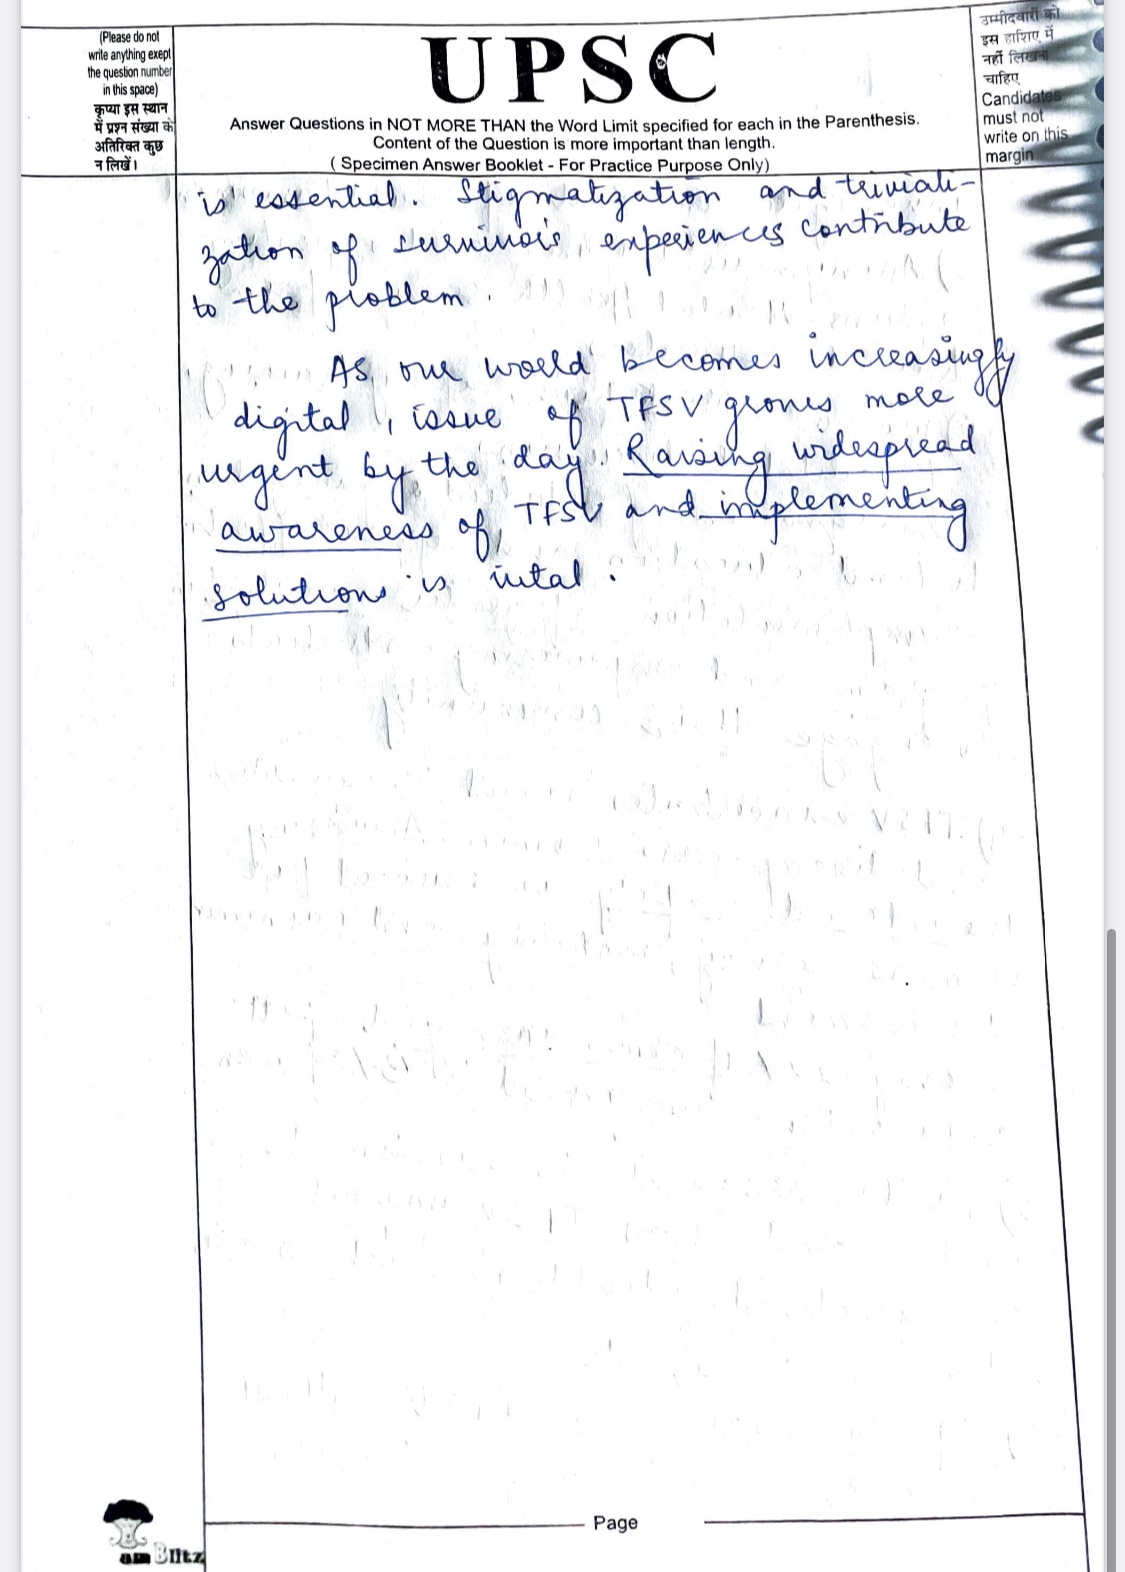 (Please do not
write anything exept
the question number
in this space)
कृप्या इस स्थान
में प्रश्न संख्या के
अतिरिक्त कुछ
न लिखें।
UPSC
Answer Questions in NOT MORE THAN the Word Limit specified for each in the Parenthesis.
Content of the Question is more important than length.
( Specimen Answer Booklet - For Practice Purpose Only)
उम्मीदवारों को
इस हाशिए में
नहीं लिखना
चाहिए
Candidates
must not
write on this
margin
is essential. Stigmatization and triviali-
zation of survivors experiences contribute
to the problem.
As our world becomes increasingly
digital, issue of TFSV grows more
urgent by the day. Raising widespread
awareness of TFSV and implementing
solutions is vital.
Page
am Blitz